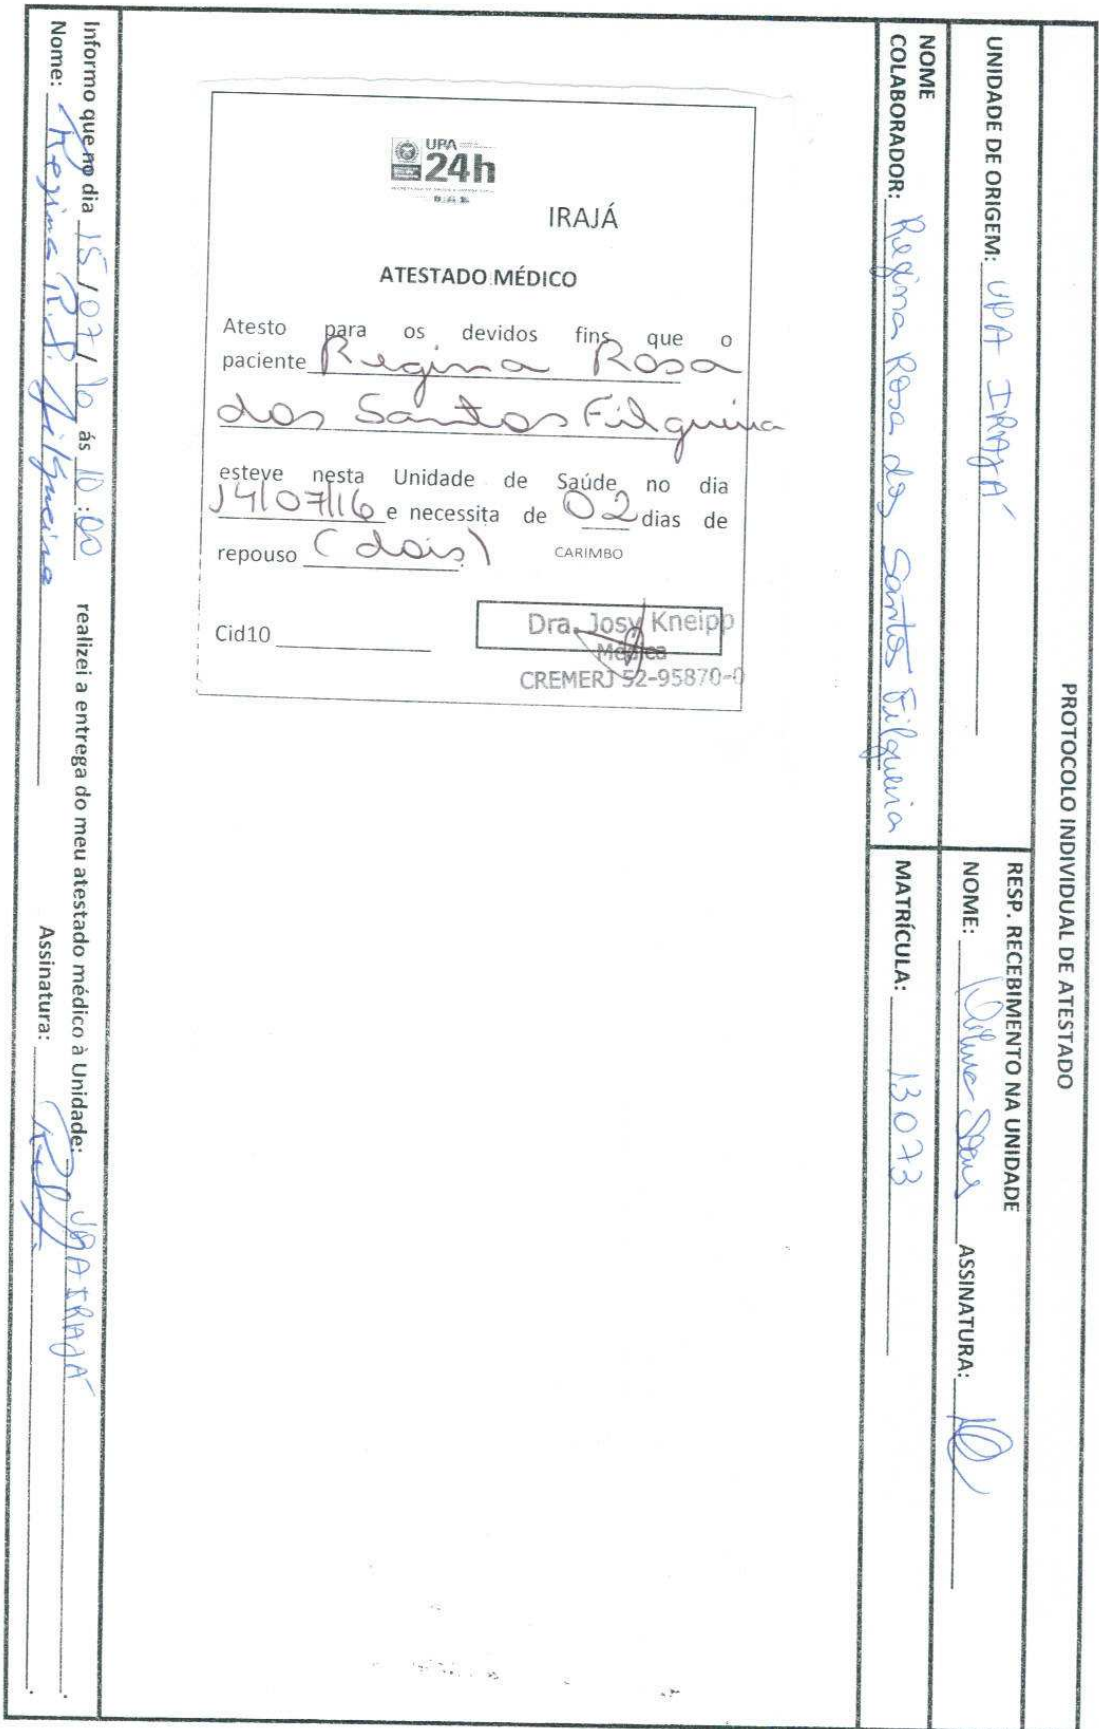 PROTOCOLO INDIVIDUAL DE ATESTADO
UNIDADE DE ORIGEM: UPA IRAJÁ
RESP. RECEBIMENTO NA UNIDADE
NOME: ASSINATURA:
NOME
COLABORADOR: Regina Rosa dos Santos Filgueira
MATRÍCULA: 13073
UPA
24h
IRAJÁ
ATESTADO MÉDICO
Atesto para os devidos fins que o
paciente Regina Rosa
dos Santos Filgueira
esteve nesta Unidade de Saúde no dia
14/07/16 e necessita de 02 dias de
repouso (dois)
CARIMBO
Cid10
Dra. Josy Kneipp
Médica
CREMERJ 52-95870-0
Informo que no dia 15/07/ ás 10:00 realizei a entrega do meu atestado médico à Unidade: UPA IRAJÁ
Nome: Regina R.S. Filgueira Assinatura: